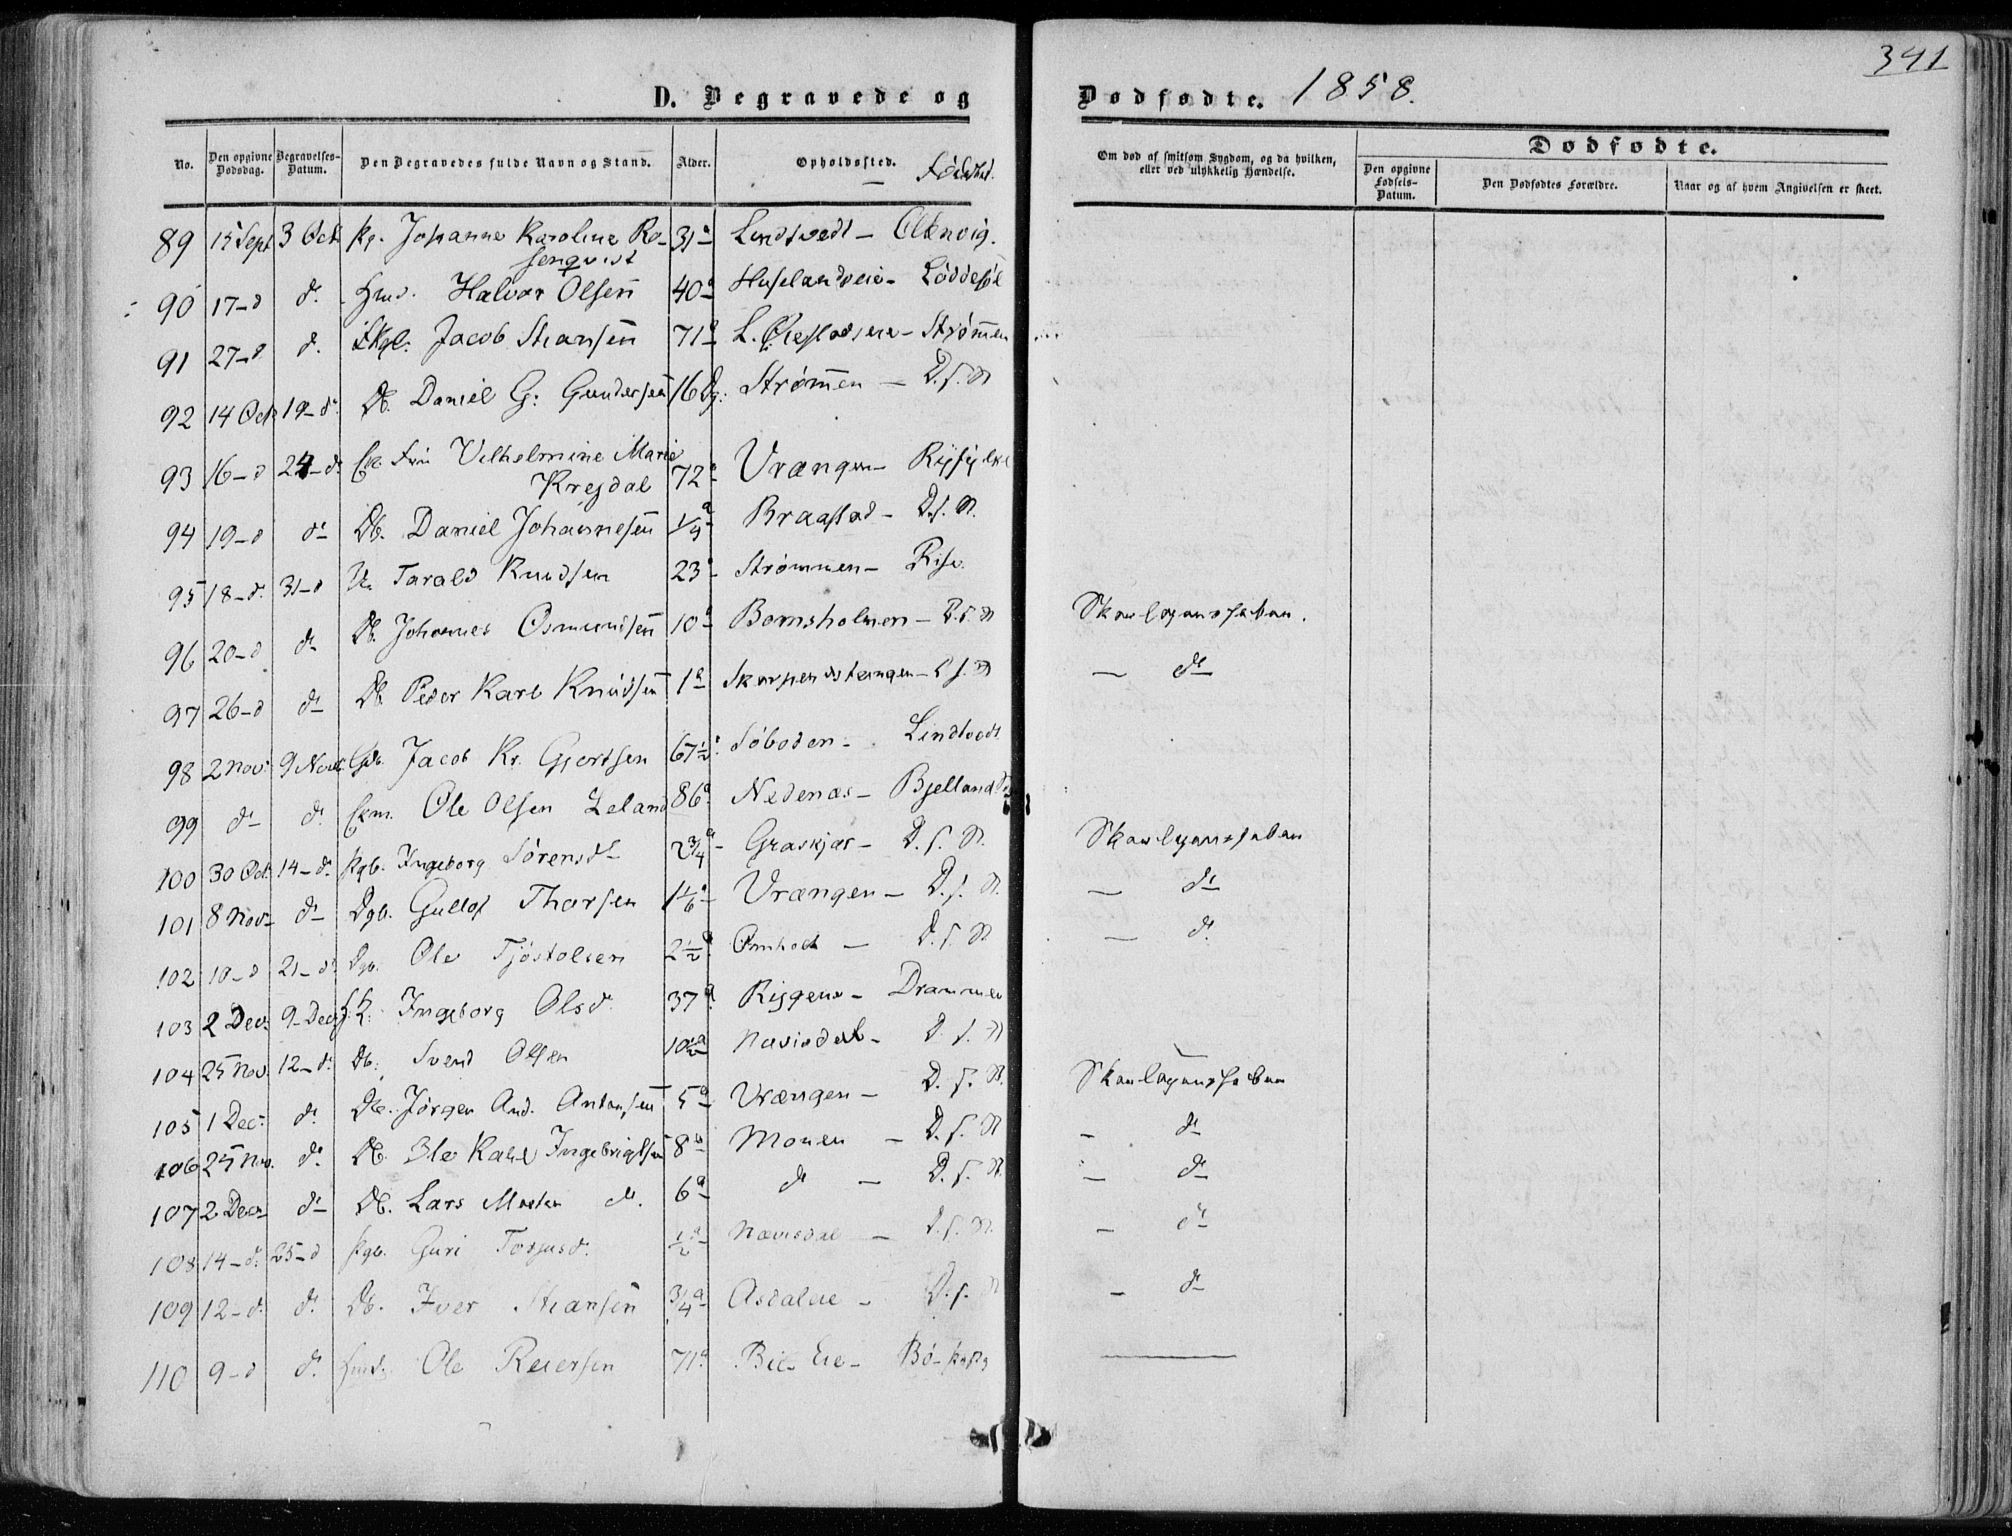 341
D. Begravede og Dødfødte. 1858.
No. Den opgivne Dødsdag. Begravelses-Datum. Den Begravedes fulde Navn og Stand. Alder. Opholdssted. Fødested. Om død af smitsom Sygdom, og da hvilken, eller ved ulykkelig Hændelse. Dødfødte.
Den opgivne Fødsels-Datum. Den Dødfødtes Forældre. Naar og af hvem Angivelsen er skeet.
89 15 Sept 3 Oct Pg. Johanne Karoline Ro- 31 a Lindtvedt -
senqvist
90 17 - d d. Halvor Olsen 40 a - Løddesøl
91 27 - d d. Jacob Stiansen 71 a L. - Strømmen
92 14 Oct 19 - d. Db. Daniel G. Gundersen 16 Dg. Strømmen - D. s. St
93 16 - d 24 - d. Vilhelmine Marie
Krejdal 72 a Vrængen -
94 19 - d d. Db. Daniel Johannesen 1/4 a Braastad - D. s. St.
95 18 - d. 31 - d U. Tarald Knudsen 23 a Strømmen - Rise.
96 20 - d d. Db. Johannes Osmundsen 10 a Bomsholmen - D. s. St Skarlagensfeber.
97 26 - d d. Db. Peder Karl Knudsen 1 a - D. s. St — d.
98 2 Nov. 9 Novb. Jacob Kr. Gjertsen 67 1/2 a Søboden - Lindtvedt
99 d. d. Ole Olsen Leland 86 a Nedenæs - Bjelland
100 30 Oct. 14 - d. Pgb. Ingeborg Sørensd. 2 3/4 a Graskjær - D. s. St. Skarlagensfeber
101 8 Nov. d. Dgb. Gullof Thorsen 1 1/6 a Vrængen - D. s. St. — d.
102 10 - d 21 - d. Dgb. Ole Tjøstolsen 2 1/2 a Omholt - D. s. St — d.
103 2 Dec. 9 - Dec. Ingeborg Olsd. 37 a - Drammen
104 25 Nov. 12 - d. Db. Svend Olsen 10 1/2 a Navisdal - D. s. St —
105 1 Dec. d. Db. Jørgen And. Antonsen 5 a Vrængen - D. s. St. Skarlagensfeber
106 25 Nov. d. Db. Ingebrigtsen 8 a Monen - D. s. St — d.
107 2 Decb. d. Db. Lars Morten d. 6 a d. - D. s. St. — d.
108 14 - d. 25 - d Pgb. Guri Torjusd. 1/2 a Navisdal - D. s. St. — d.
109 12 - d. d. Db. Iver Stiansen 3/4 a - D. s. St — d.
110 9 - d d. Ole Reiersen 71 a - Eie - Bø —